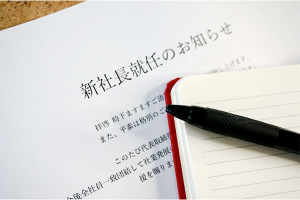 新社長就任のお知らせ
拝啓 時下ますますご清
また、平素は格別のご
このたび代表取締役
今後全社員一致団結して社業発展
援を賜りま